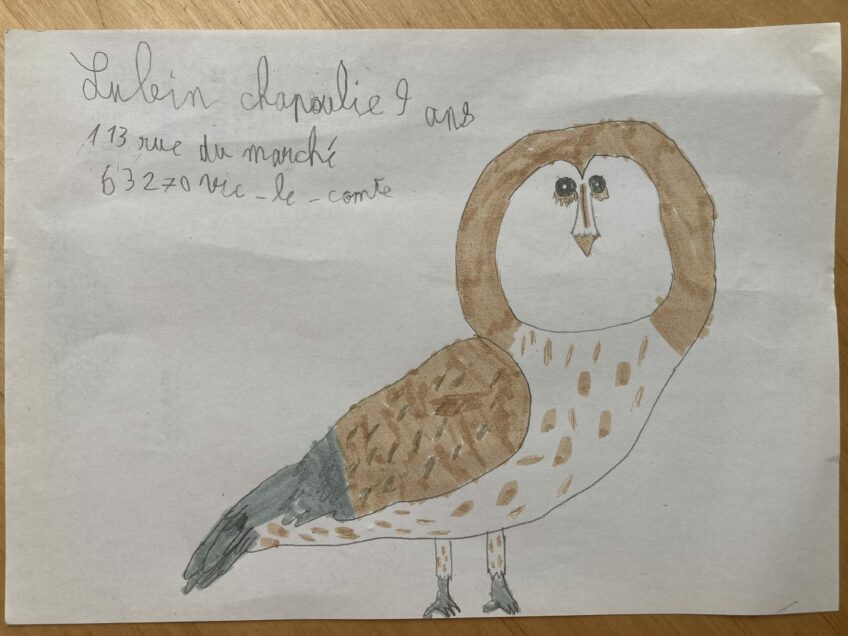 Lubin chapoulie 9 ans
113 rue du marché
63270 vic-le-comte